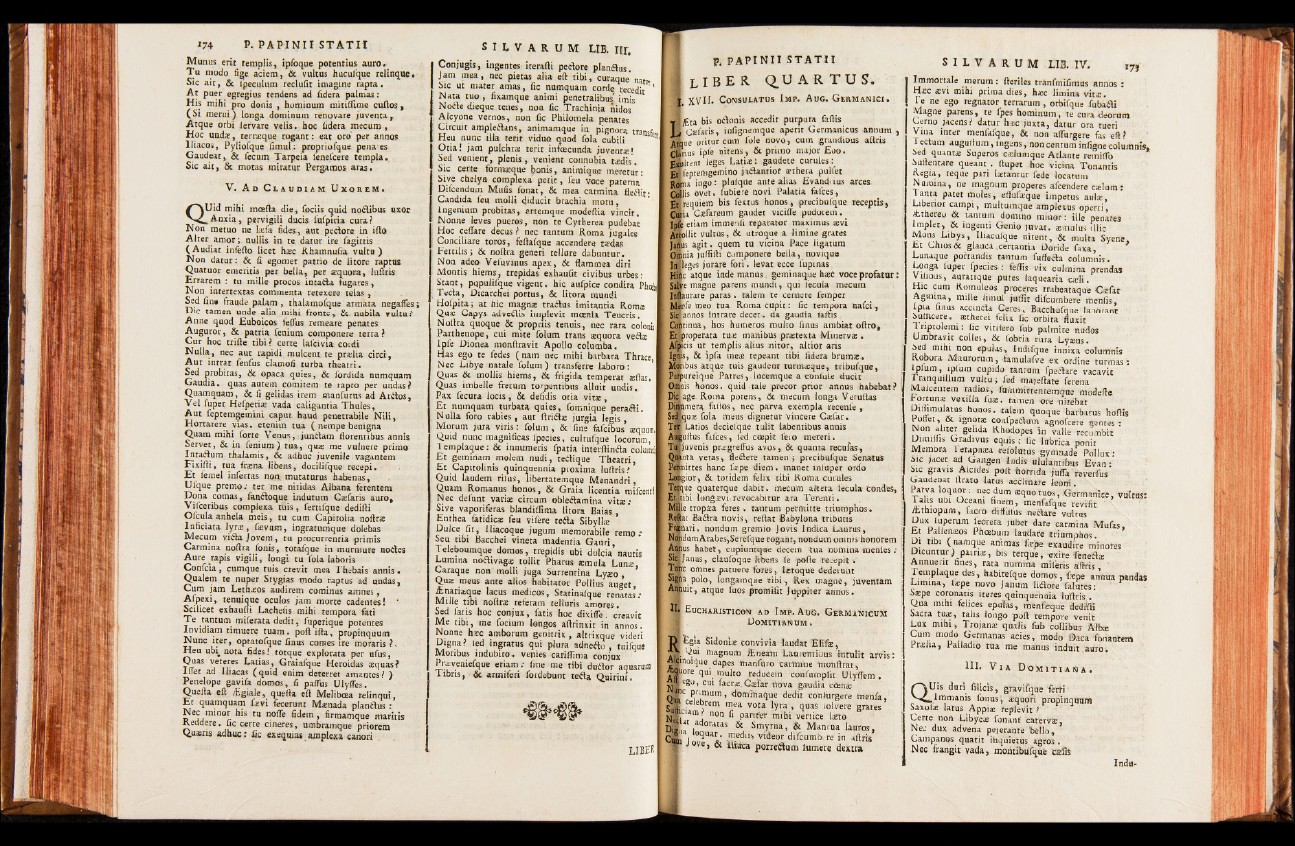 174 P. PAPINII STATII
Munus erit templis, ipsoque potentius auro.
Tu modo fige aciem, & vultus hucusque relinque.
Sic ait, & speculum reclusit imagine rapta.
At puer egregius tendens ad sidera palmas:
His mihi pro donis, hominum mitissime custos,
(Si merui) longa dominum renovare juventa,
Atque orbi servare velis. hoc sidera mecum,
Hoc undæ, terræque rogant: eat oro per annos
Iliacos, Pyliosque simul: propriosque penates
Gaudeat, & secum Tarpeia senescere templa.
Sic ait, & motas miratur Pergamos aras.
V. AD CLAUDIAM UXOREM.
QUid mihi mœsta die, sociis quid noctibus uxor
Anxia, pervigili ducis suspiria cura?
Non metuo ne læsa fides, aut pectore in isto
Alter amor; nullis in te datur ire sagittis
(Audiat infesto licet hæc Rhamnusia vultu)
Non datur: & si egomet patrio de litore raptus
Quatuor emeritis per bella, per æquora, lustris
Errarem: tu mille procos intacta fugares,
Non intertextas commenta retexere telas,
Sed sine fraude palam, thalamosque armata negasses;
Dic tamen unde alia mihi fronte, & nubila vultu?
Anne quod Euboicos fessus remeare penates
Auguror, & patria senium componere terra?
Cur hoc triste tibi? certe lascivia cordi
Nulla, nec aut rapidi mulcent te prælia circi,
Aut intrat sensus clamosi turba theatri.
Sed probitas, & opaca quies, & sordida numquam
Gaudia. quas autem comitem te rapto per undas?
Quamquam, & si gelidas irem mansurus ad Arctos,
Vel super Hesperiæ vada caligantia Thules,
Aut septemgemini caput haud penetrabile Nili,
Hortarere vias. etenim tua (nempe benigna
Quam mihi sorte Venus, junctam florentibus annis
Servet, & in senium) tua, quæ me vulnere primo
Intactum thalamis, & adhuc juvenile vagantem
Fixisti, tua fræna libens, docilisque recepi.
Et semel insertas non mutaturus habenas,
Usque premo: ter me nitidas Albana ferentem
Dona comas, sanctoque indutum Cæsaris auro,
Visceribus complexa tuis, sertisque dedisti
Oscula anhela meis, tu cum Capitolia nostræ
Inficiata lyræ, sævum, ingratumque dolebas
Mecum victa Jovem, tu procurrentia primis
Carmina nostra sonis, totasque in murmure noctes
Aure rapis vigili, longi tu sola laboris
Conscia, cumque tuis crevit mea Thebais annis.
Qualem te nuper Stygias modo raptus ad undas,
Cum jam Lethæos audirem cominus amnes,
Aspexi, tenuique oculos jam morte cadentes!
Scilicet exhausti Lachesis mihi tempora fati
Te tantum miserata dedit, superique potentes
Invidiam timuere tuam. post ista, propinquum
Nunc iter, optatosque sinus comes ire moraris?
Heu ubi nota fides! totque explorata per usus,
Quas veteres Latias, Graiasque Heroidas æquas?
Isset ad Iliacas (quid enim deterret amantes?)
Penelope gavisa domos, si passus Ulysses.
Questa est Ægiale, questa est Melibœa relinqui,
Et quamquam sævi fecerunt Mænada planctus:
Nec minor his tu nosse fidem, firmamque maritis
Reddere. sic certe cineres, umbramque priorem
Quæris adhuc: sic exequias amplexa canori
SILVARUM LIB. III.
Conjugis, ingentes iterasti pectore planctus.
Jam mea, nec pietas alia est tibi, curaque natæ,
Sic ut mater amas, sic numquam corde recedit
Nata tuo, fixamque animi penetralibus imis
Nocte dieque tenes, non sic Trachinia nidos
Alcyone vernos, non sic Philomela penates
Circuit amplectans, animamque in pignora
Heu nunc illa terit viduo quod sola cubili
Otia! jam pulchræ terit infœcunda juventæ!
Sed venient, plenis, venient connubia tædis.
Sic certe formæque bonis, animique meretur:
Sive chelyn complexa petit, seu voce paterna
Discendum Musis sonat, & mea carmina flectit:
Candida seu molli diducit brachia motu,
Ingenium probitas, artemque modestia vincit.
Nonne leves pueros, non te Cytherea pudebat
Hoc cessare decus? nec tantum Roma jugales
Conciliare toros, festasque accendere tædas
Fertilis; & nostra generi tellure dabuntur.
Non adeo Vesuvinus apex, & flammea diri
Montis hiems, trepidas exhausit civibus urbes:
Stant, populisque vigent. hic auspice condita
Tecta, Dicarchei portus, & litora mundi
Hospita; at hic magnæ tractus imitantia Romæ
Quæ Capys advectis implevit mœnia Teucris.
Nostra quoque & propriis tenuis, nec rara
Parthenope, cui mite solum trans æquora vectæ
Ipse Dionea monstravit Apollo columba.
Has ego te sedes (nam nec mihi barbara Thrace,
Nec Libye natale solum) transferre laboro:
Quas & mollis hiems, & frigida temperat æstas.
Quas imbelle fretum torpentibus alluit undis.
Pax secura locis, & desidis otia vitæ,
Et numquam turbata quies, somnique peracti.
Nulla foro rabies, aut strictæ jurgia legis,
Morum jura viris: solum, & sine fascibus æquum.
Quid nunc magnificas species, cultusque locorum,
Templaque: & innumeris spatia interstincta
Et geminam molem nudi, tectique Theatri,
Et Capitolinis quinquennia proxima lustris?
Quid laudem risus, libertatemque Menandri,
Quam Romanus honos, & Graia licentia
Nec desunt variæ circum oblectamina vitæ:
Sive vaporiferas blandissima litora Baias,
Enthea fatidicæ seu visere tecta Sibyllæ
Dulce sit, Iliacoque jugum memorabile remo:
Seu tibi Bacchei vineta madentia Gauri,
Teleboumque domos, trepidis ubi dulcia nautis
Lumina noctivagæ tollit Pharus æmula Lunæ,
Caraque non molli juga Surrentina Lyæo,
Quæ meus ante alios habitator Pollius auget,
Ænariæque lacus medicos, Statinasque renatas:
Mille tibi nostræ referam telluris amores.
Sed satis hoc conjux, satis hoc dixisse. creavit
Me tibi, me socium longos astrinxit in annos.
Nonne hæc amborum genitrix, altrixque videri
Digna? sed ingratus qui plura adnecto, tuisque
Moribus indubito. venies carissima conjux
Præveniesque etiam: sine me tibi ductor aquarum
Tibris, & armiferi sordebunt tecta Quirini.
LIBER
P. PAPINII STATII
LIBER QUARTUS.
I. XVII. CONSULATUS IMP. AUG. GERMANICI.
LÆta bis octonis accedit purpura fastis
Cæsaris, insignemque aperit Germanicus annum,
Atque oritur cum sole novo, cum grandibus astris
Clarius ipse nitens, & primo major Eoo.
Exultent leges Latiæ: gaudete curules:
Et septemgemino jactantior æthera pulset
Roma jugo: plusque ante alias Evandrius arces
Collis ovet. subiere novi Palatia fasces,
Et requiem bis sextus honos, precibusque receptis,
Curia Cæsareum gaudet vicisse pudorem.
Ipse etiam immensi reparator maximus ævi
Attollit vultus, & utroque a limine grates
Janus agit. quem tu vicina Pace ligatum
Omnia jussisti componere bella, novique
In leges jurare fori. levat ecce supinas
Hinc atque inde manus, geminaque hæc voce profatur:
Salve magne parens mundi, qui secula mecum
Instaurare paras. talem te cernere semper
Mense meo tua Roma cupit: sic tempora nasci,
Sic annos intrare decet. da gaudia fastis
Continua, hos humeros multo sinus ambiat ostro,
Et properata tuæ manibus prætexta Minervæ.
Aspicis ut templis alius nitor, altior aris
Ignis, & ipsa meæ tepeant tibi sidera brumæ.
Moribus atque tuis gaudent turmæque, tribusque,
Purpureique Patres, lucemque a consule ducit
Omnis honos. quid tale precor prior annus habebat?
Dic age Roma potens, & mecum longa Vetustas
Dinumera fastos, nec parva exempla recense,
Sed quæ sola meus dignetur vincere Cæsar.
Ter Latios deciesque tulit labentibus annis
Augustus fasces, sed cœpit sero mereri.
Tu juvenis prægressus avos, & quanta recusas,
Quanta vetas, flectere tamen; precibusque Senatus
Permittes hanc sæpe diem. manet insuper ordo
Longior, & totidem felix tibi Roma curules
Terque quaterque dabit. mecum altera secula condes,
Et tibi longævi revocabitur ara Terenti.
Mille tropæa feres. tantum permitte triumphos.
Restat Bactra novis, restat Babylona tributis
Frænari. nondum gremio Jovis Indica Laurus,
Nondum Arabes, Seresque rogant, nondum omnis honorem
Annus habet, cupiuntque decem tua nomina menses:
Sic Janus, clausoque libens se poste recepit.
Tunc omnes patuere fores, lætoque dederunt
Signa polo, longamque tibi, Rex magne, juventam
Annuit, atque suos promisit Juppiter annos.
II. EUCHARISTICON AD IMP. AUG. GERMANICUM
DOMITIANUM.
REgia Sidoniæ convivia laudat Elisæ,
Qui magnum Æneam Laurentibus intulit arvis:
Alcinoique dapes mansuro carmine monstrat,
Æquore qui multo reducem consumpsit Ulyssem.
Ast ego, cui sacræ Cæsar nova gaudia cœnæ
Nunc primum, dominaque dedit consurgere mensa,
Qua celebrem mea vota lyra, quas solvere grates
Sufficiam? non si pariter mihi vertice læto
Nectat adoratas & Smyrna, & Mantua lauros,
Digna loquar. mediis videor discumbere in astris
Cum Jove, & Iliaca porrectum sumere dextra
SILVARUM LIB. IV. 175
Immortale merum: steriles transmisimus annos:
Hæc ævi mihi prima dies, hæc limina vitæ.
Te ne ego regnator terrarum, orbisque subacti
Magne parens, te spes hominum, te cura deorum
Cerno jacens? datur hæc juxta, datur ora tueri
Vina inter mensasque, & non assurgere fas est?
Tectum augustum, ingens, non centum insigne columnis,
Sed quantæ Superos cælumque Atlante remisso
Sustentare queant. stupet hoc vicina Tonantis
Regia, teque pari lætantur sede locatum
Numina, ne magnum properes ascendere cælum:
Tanta patet moles, effusæque impetus aulæ,
Liberior campi, multumque amplexus operti,
Æthereo & tantum domino minor: ille penates
Implet, & ingenti Genio juvat. æmulus illic
Mons Libys, Iliacusque nitent, & multa Syene,
Et Chios & glauca certantia Doride saxa,
Lunaque portandis tantum suffecta columnis.
Longa super species: fessis vix culmina prendas
Visibus, auratique putes laquearia cæli.
Hic cum Romuleos proceres trabeataque Cæsar
Agmina, mille simul jussit discumbere mensis,
Ipsa sinus accincta Ceres, Bacchusque laborant
Sufficere. ætherei felix sic orbita fluxit
Triptolemi: sic vitifero sub palmite nudos
Umbravit colles, & sobria rura Lyæus.
Sed mihi non epulas, Indisque innixa columnis
Robora Maurorum, famulasve ex ordine turmas:
Ipsum, ipsum cupido tantum spectare vacavit
Tranquillum vultu, sed majestate serena
Mulcentem radios, summittentemque modeste
Fortunæ vexilla suæ. tamen ore nitebat
Dissimulatus honos. talem quoque barbarus hostis
Posset, & ignotæ conspectum agnoscere gentes:
Non aliter gelida Rhodopes in valle recumbit
Dimissis Gradivus equis: sic lubrica ponit
Membra Terapnæa resolutus gymnade Pollux:
Sic jacet ad Gangen Indis ululantibus Evan:
Sic gravis Alcides post horrida jussa reversus
Gaudebat strato latus acclinare leoni.
Parva loquor: nec dum æquo tuos, Germanice, vultus:
Talis ubi Oceani finem, mensasque revisit
Æthiopum, sacro diffusus nectare vultus
Dux superum secreta jubet dare carmina Musas,
Et Pallenæos Phœbum laudare triumphos.
Di tibi (namque animas sæpe exaudire minores
Dicuntur) patriæ, bis terque, exire senectæ
Annuerit fines, rata numina miseris astris,
Templaque des, habitesque domos, sæpe annua pandas
Limina, sæpe novo Janum lictore salutes:
Sæpe coronatis iteres quinquennia lustris.
Qua mihi felices epulas, mensæque dedisti
Sacra tuæ, talis longo post tempore venit
Lux mihi, Trojanæ qualis sub collibus Albæ
Cum modo Germanas acies, modo Daca sonantem
Prælia, Palladio tua me manus induit auro.
III. VIA DOMITIANA.
QUis duri silicis, gravisque ferri
Immanis sonus, æquori propinquum
Saxosæ latus Appiæ replevit?
Certe non Libycæ sonant catervæ,
Nec dux advena pejerante bello,
Campanos quatit inquietus agros.
Nec frangit vada, montibusque cæsis
Indu-